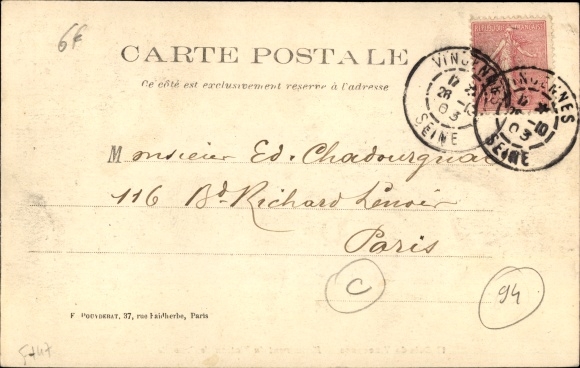 6F
CARTE POSTALE
Ce côté est exclusivement réservé à l'adresse
RÉPUBLIQUE FRANÇAISE
VINCENNES
17
26 -10
03
SEINE
VINCENNES
17
26 -10
03
SEINE
Monsieur Ed. Chadourgnac
116 Bd. Richard Lenoir
Paris
C
94
F. POUYDEBAT, 37, rue Faidherbe, Paris